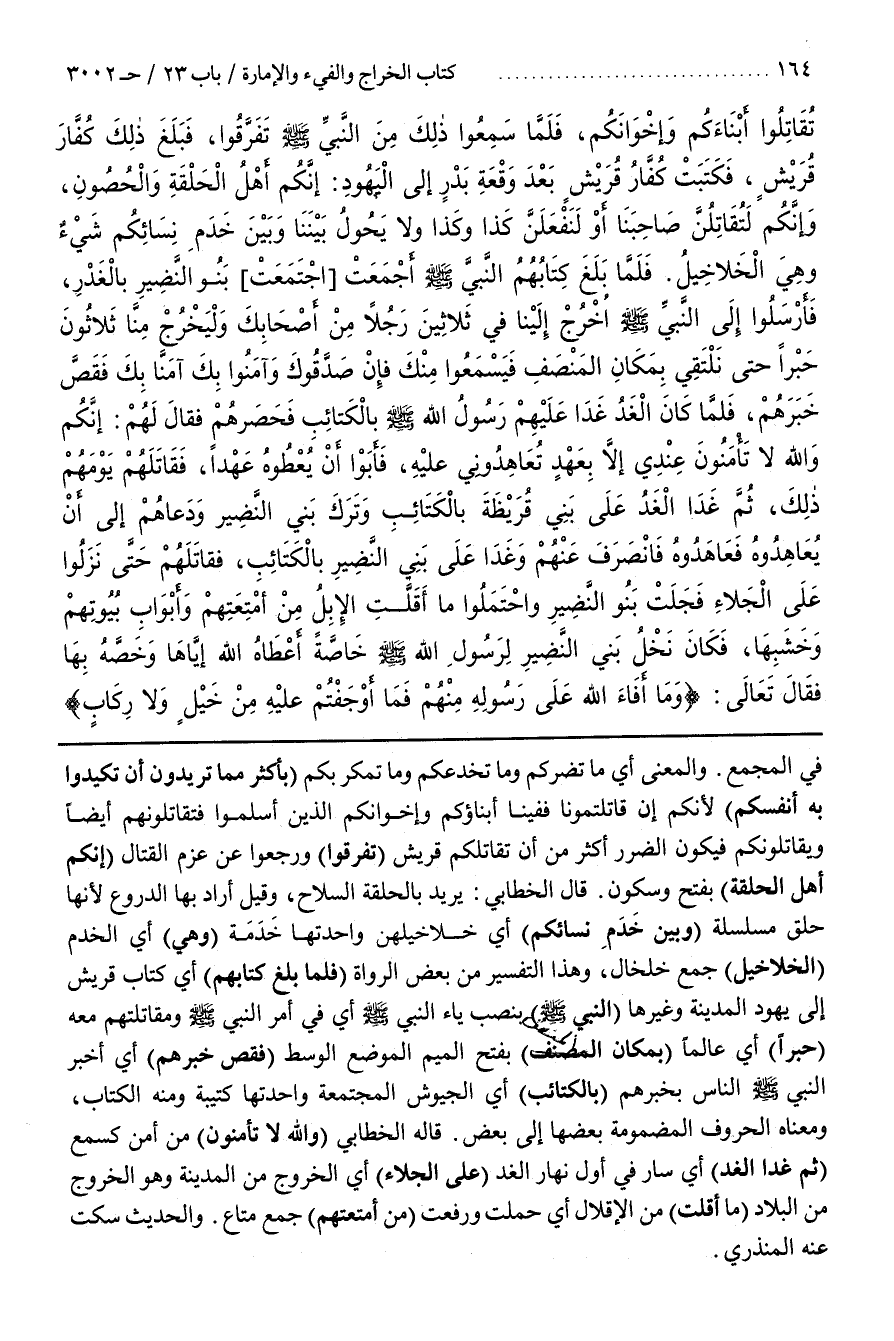 ١٦٤ ............................... كتاب الخراج والفيء والإمارة / باب ٢٣ / حـ ٣٠٠٢
تُقَاتِلُوا أَبْنَاءَكُم وَإخْوَانَكُم، فَلَمَّا سَمِعُوا ذٰلِكَ مِنَ النَّبيِّ ﷺ تَفَرَّقُوا، فَبَلَغَ ذٰلِكَ كُفَّارَ
قُرَيْشٍ، فَكَتَبَتْ كُفَّارُ قُرَيْشٍ بَعْدَ وَقْعَةِ بَدْرٍ إلى الْيَهُودِ: إنَّكُم أَهْلُ الْحَلْقَةِ وَالْحُصُونِ،
وَإنَّكُم لَتُقَاتِلُنَّ صَاحِبَنَا أَوْ لَنَفْعَلَنَّ كَذا وَكَذا ولا يَحُولُ بَيْنَنَا وَبَيْنَ خَدَمِ نِسَائِكُم شَيْءٌ
وهِيَ الْخَلاخِيلُ. فَلَمَّا بَلَغَ كِتَابُهُمُ النَّبيَّ ﷺ أَجْمَعَتْ [اجْتَمَعَتْ] بَنُو النَّضِيرِ بالْغَدْرِ،
فَأَرْسَلُوا إِلَى النَّبيِّ ﷺ اُخْرُجْ إِلَيْنا في ثَلاثِينَ رَجُلًا مِنْ أَصْحَابِكَ وَلْيَخْرُجْ مِنَّا ثَلاثُونَ
حَبْراً حتى نَلْتَقِي بِمَكَانِ المَنْصَفِ فَيَسْمَعُوا مِنْكَ فإِنْ صَدَّقُوكَ وَآمَنُوا بِكَ آمَنَّا بِكَ فَقَصَّ
خَبَرَهُمْ، فَلمَّا كَانَ الْغَدُ غَدَا عَلَيْهِمْ رَسُولُ الله ﷺ بالْكَتَائِبِ فَحَصَرهُمْ فقالَ لَهُمْ: إنَّكُم
وَالله لا تَأْمَنُونَ عِنْدِي إلَّا بِعَهْدٍ تُعَاهِدُونِي عليْهِ، فَأَبَوْا أَنْ يُعْطُوهُ عَهْداً، فَقَاتَلَهُمْ يَوْمَهُمْ
ذٰلِكَ، ثُمَّ غَدَا الْغَدُ عَلَى بَنِي قُرَيْظَةَ بالْكَتَائِبِ وَتَرَكَ بَنِي النَّضِيرِ وَدَعاهُمْ إلى أَنْ
يُعَاهِدُوهُ فَعَاهَدُوهُ فَانْصَرَفَ عَنْهُمْ وَغَدَا عَلَى بَنِي النَّضِيرِ بالْكَتَائِبِ، فقاتَلَهُمْ حَتَّى نَزَلُوا
عَلَى الْجَلاءِ فَجَلَتْ بَنُو النَّضِيرِ واحْتَمَلُوا ما أَقَلَّتِ الإِبِلُ مِنْ أمْتِعَتِهِمْ وَأَبْوَابِ بُيُوتِهِمْ
وَخَشَبِهَا، فَكَانَ نَخْلُ بَني النَّضِيرِ لِرَسُولِ الله ﷺ خَاصَّةً أَعْطَاهُ الله إيَّاهَا وَخَصَّهُ بِهَا
فقَالَ تَعَالَى: ﴿وَمَا أَفَاءَ الله عَلَى رَسُولِهِ مِنْهُمْ فَمَا أَوْجَفْتُمْ عليْهِ مِنْ خَيْلٍ وَلا رِكَابٍ﴾
في المجمع. والمعنى أي ما تضركم وما تخدعكم وما تمكر بكم (بأكثر مما تريدون أن تكيدوا
به أنفسكم) لأنكم إن قاتلتمونا ففينا أبناؤكم وإخوانكم الذين أسلموا فتقاتلونهم أيضاً
ويقاتلونكم فيكون الضرر أكثر من أن تقاتلكم قريش (تفرقوا) ورجعوا عن عزم القتال (إنكم
أهل الحلقة) بفتح وسكون. قال الخطابي: يريد بالحلقة السلاح، وقيل أراد بها الدروع لأنها
حلق مسلسلة (وبين خَدَمِ نسائكم) أي خلاخيلهن واحدتها خَدَمَة (وهي) أي الخدم
(الخلاخيل) جمع خلخال، وهذا التفسير من بعض الرواة (فلما بلغ كتابهم) أي كتاب قريش
إلى يهود المدينة وغيرها (النبي ﷺ) بنصب ياء النبي ﷺ أي في أمر النبي ﷺ ومقاتلتهم معه
(حبراً) أي عالماً (بمكان المصنف) بفتح الميم الموضع الوسط (فقص خبرهم) أي أخبر
النبي ﷺ الناس بخبرهم (بالكتائب) أي الجيوش المجتمعة واحدتها كتيبة ومنه الكتاب،
ومعناه الحروف المضمومة بعضها إلى بعض. قاله الخطابي (والله لا تأمنون) من أمن كسمع
(ثم غدا الغد) أي سار في أول نهار الغد (على الجلاء) أي الخروج من المدينة وهو الخروج
من البلاد (ما أقلت) من الإقلال أي حملت ورفعت (من أمتعتهم) جمع متاع. والحديث سكت
عنه المنذري.